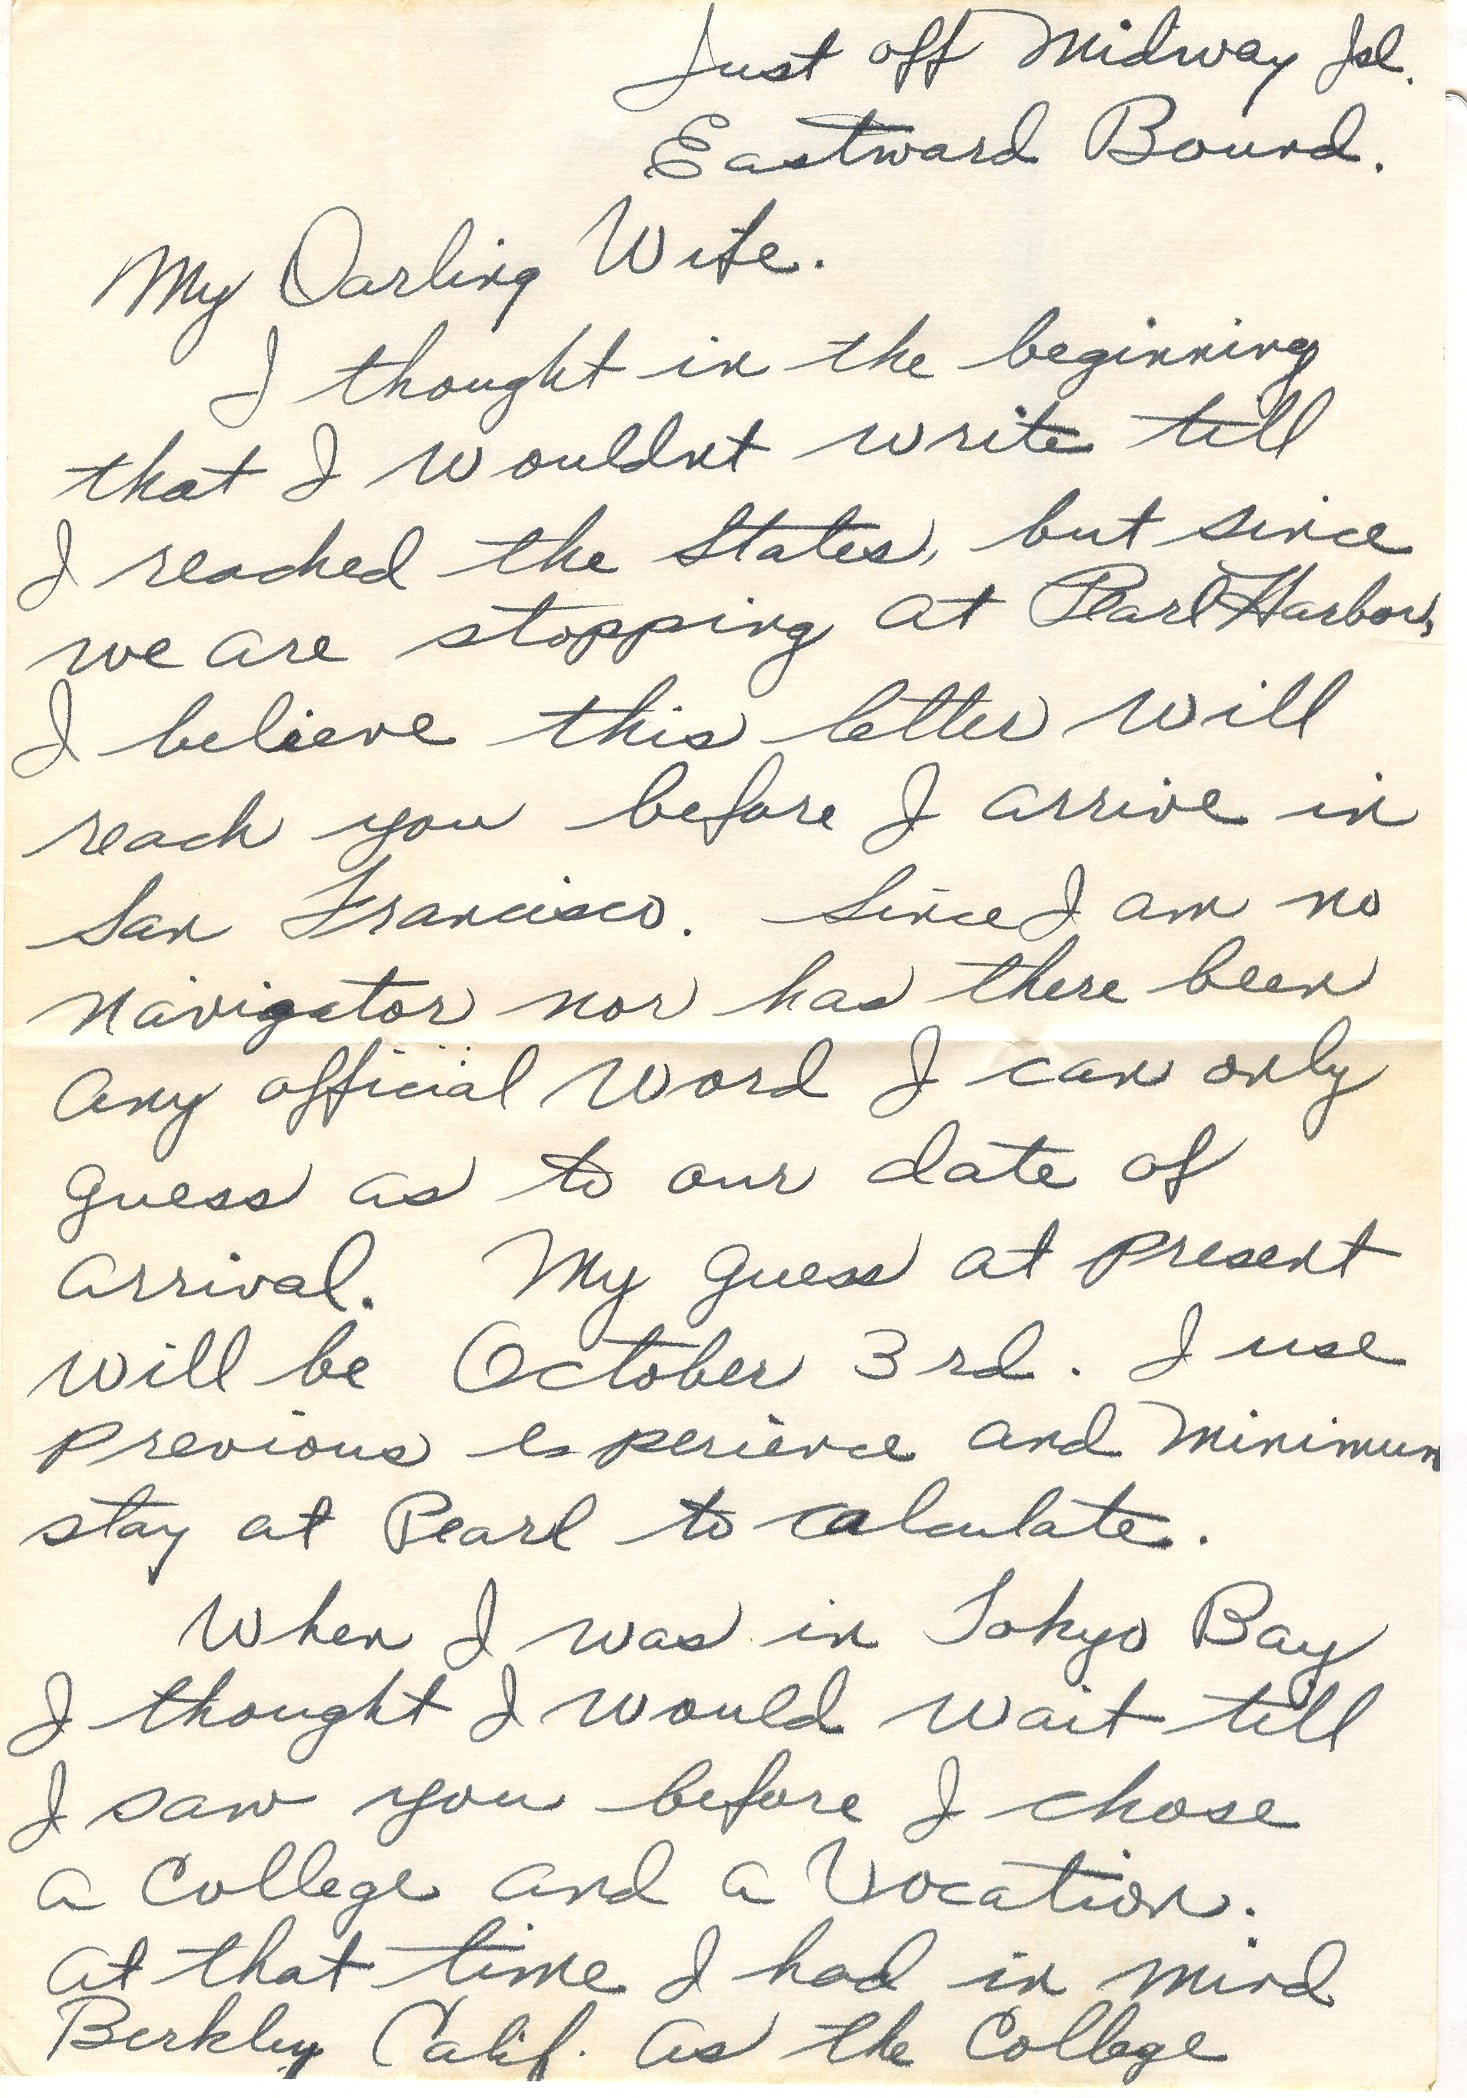 Just off Midway Isl.
Eastward Bound.
My Darling Wife.
I thought in the beginning
that I wouldnt write till
I reached the States, but since
we are stopping at Pearl Harbor,
I believe this letter will
reach you before I arrive in
San Francisco. Since I am no
navigator nor has there been
any official word I can only
guess as to our date of
arrival. My guess at present
will be October 3rd. I use
previous experience and minimum
stay at Pearl to calculate.
When I was in Tokyo Bay
I thought I would wait till
I saw you before I chose
a College and a Vocation.
At that time I had in mind
Berkley Calif. as the College